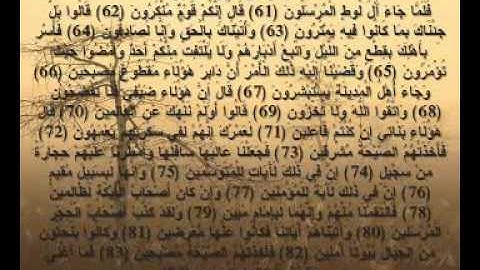 فلما جاء آل لوط المرسلون (61) قال إنكم قوم منكرون (62) قالوا بل
جئناك بما كانوا فيه يمترون (63) وأتيناك بالحق وإنا لصادقون (64) فأسر
بأهلك بقطع من الليل واتبع أدبارهم ولا يلتفت منكم أحد وامضوا حيث
تؤمرون (65) وقضينا إليه ذلك الأمر أن دابر هؤلاء مقطوع مصبحين (66)
وجاء أهل المدينة يستبشرون (67) قال إن هؤلاء ضيفي فلا تفضحون
(68) واتقوا الله ولا تخزون (69) قالوا أولم ننهك عن العالمين (70) قال
هؤلاء بناتي إن كنتم فاعلين (71) لعمرك إنهم لفي سكرتهم يعمهون (72)
فأخذتهم الصيحة مشرقين (73) فجعلنا عاليها سافلها وأمطرنا عليهم حجارة
من سجيل (74) إن في ذلك لآيات للمتوسمين (75) وإنها لبسبيل مقيم
(76) إن في ذلك لآية للمؤمنين (77) وإن كان أصحاب الأيكة لظالمين
(78) فانتقمنا منهم وإنهما لبإمام مبين (79) ولقد كذب أصحاب الحجر
المرسلين (80) وآتيناهم آياتنا فكانوا عنها معرضين (81) وكانوا ينحتون
من الجبال بيوتا آمنين (82) فأخذتهم الصيحة مصبحين (83) فما أغنى